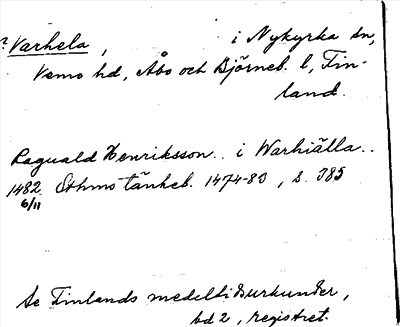 ? Varhela, i Nykyrka sn,
Vemo hd, Åbo och Björneb. l, Fin-
land.
Raguald Henriksson.. i Warhiälla..
1482 6/11 Sthms tänkeb. 1474-83, s. 385
Se Finlands medeltidsurkunder,
bd 2, registret.